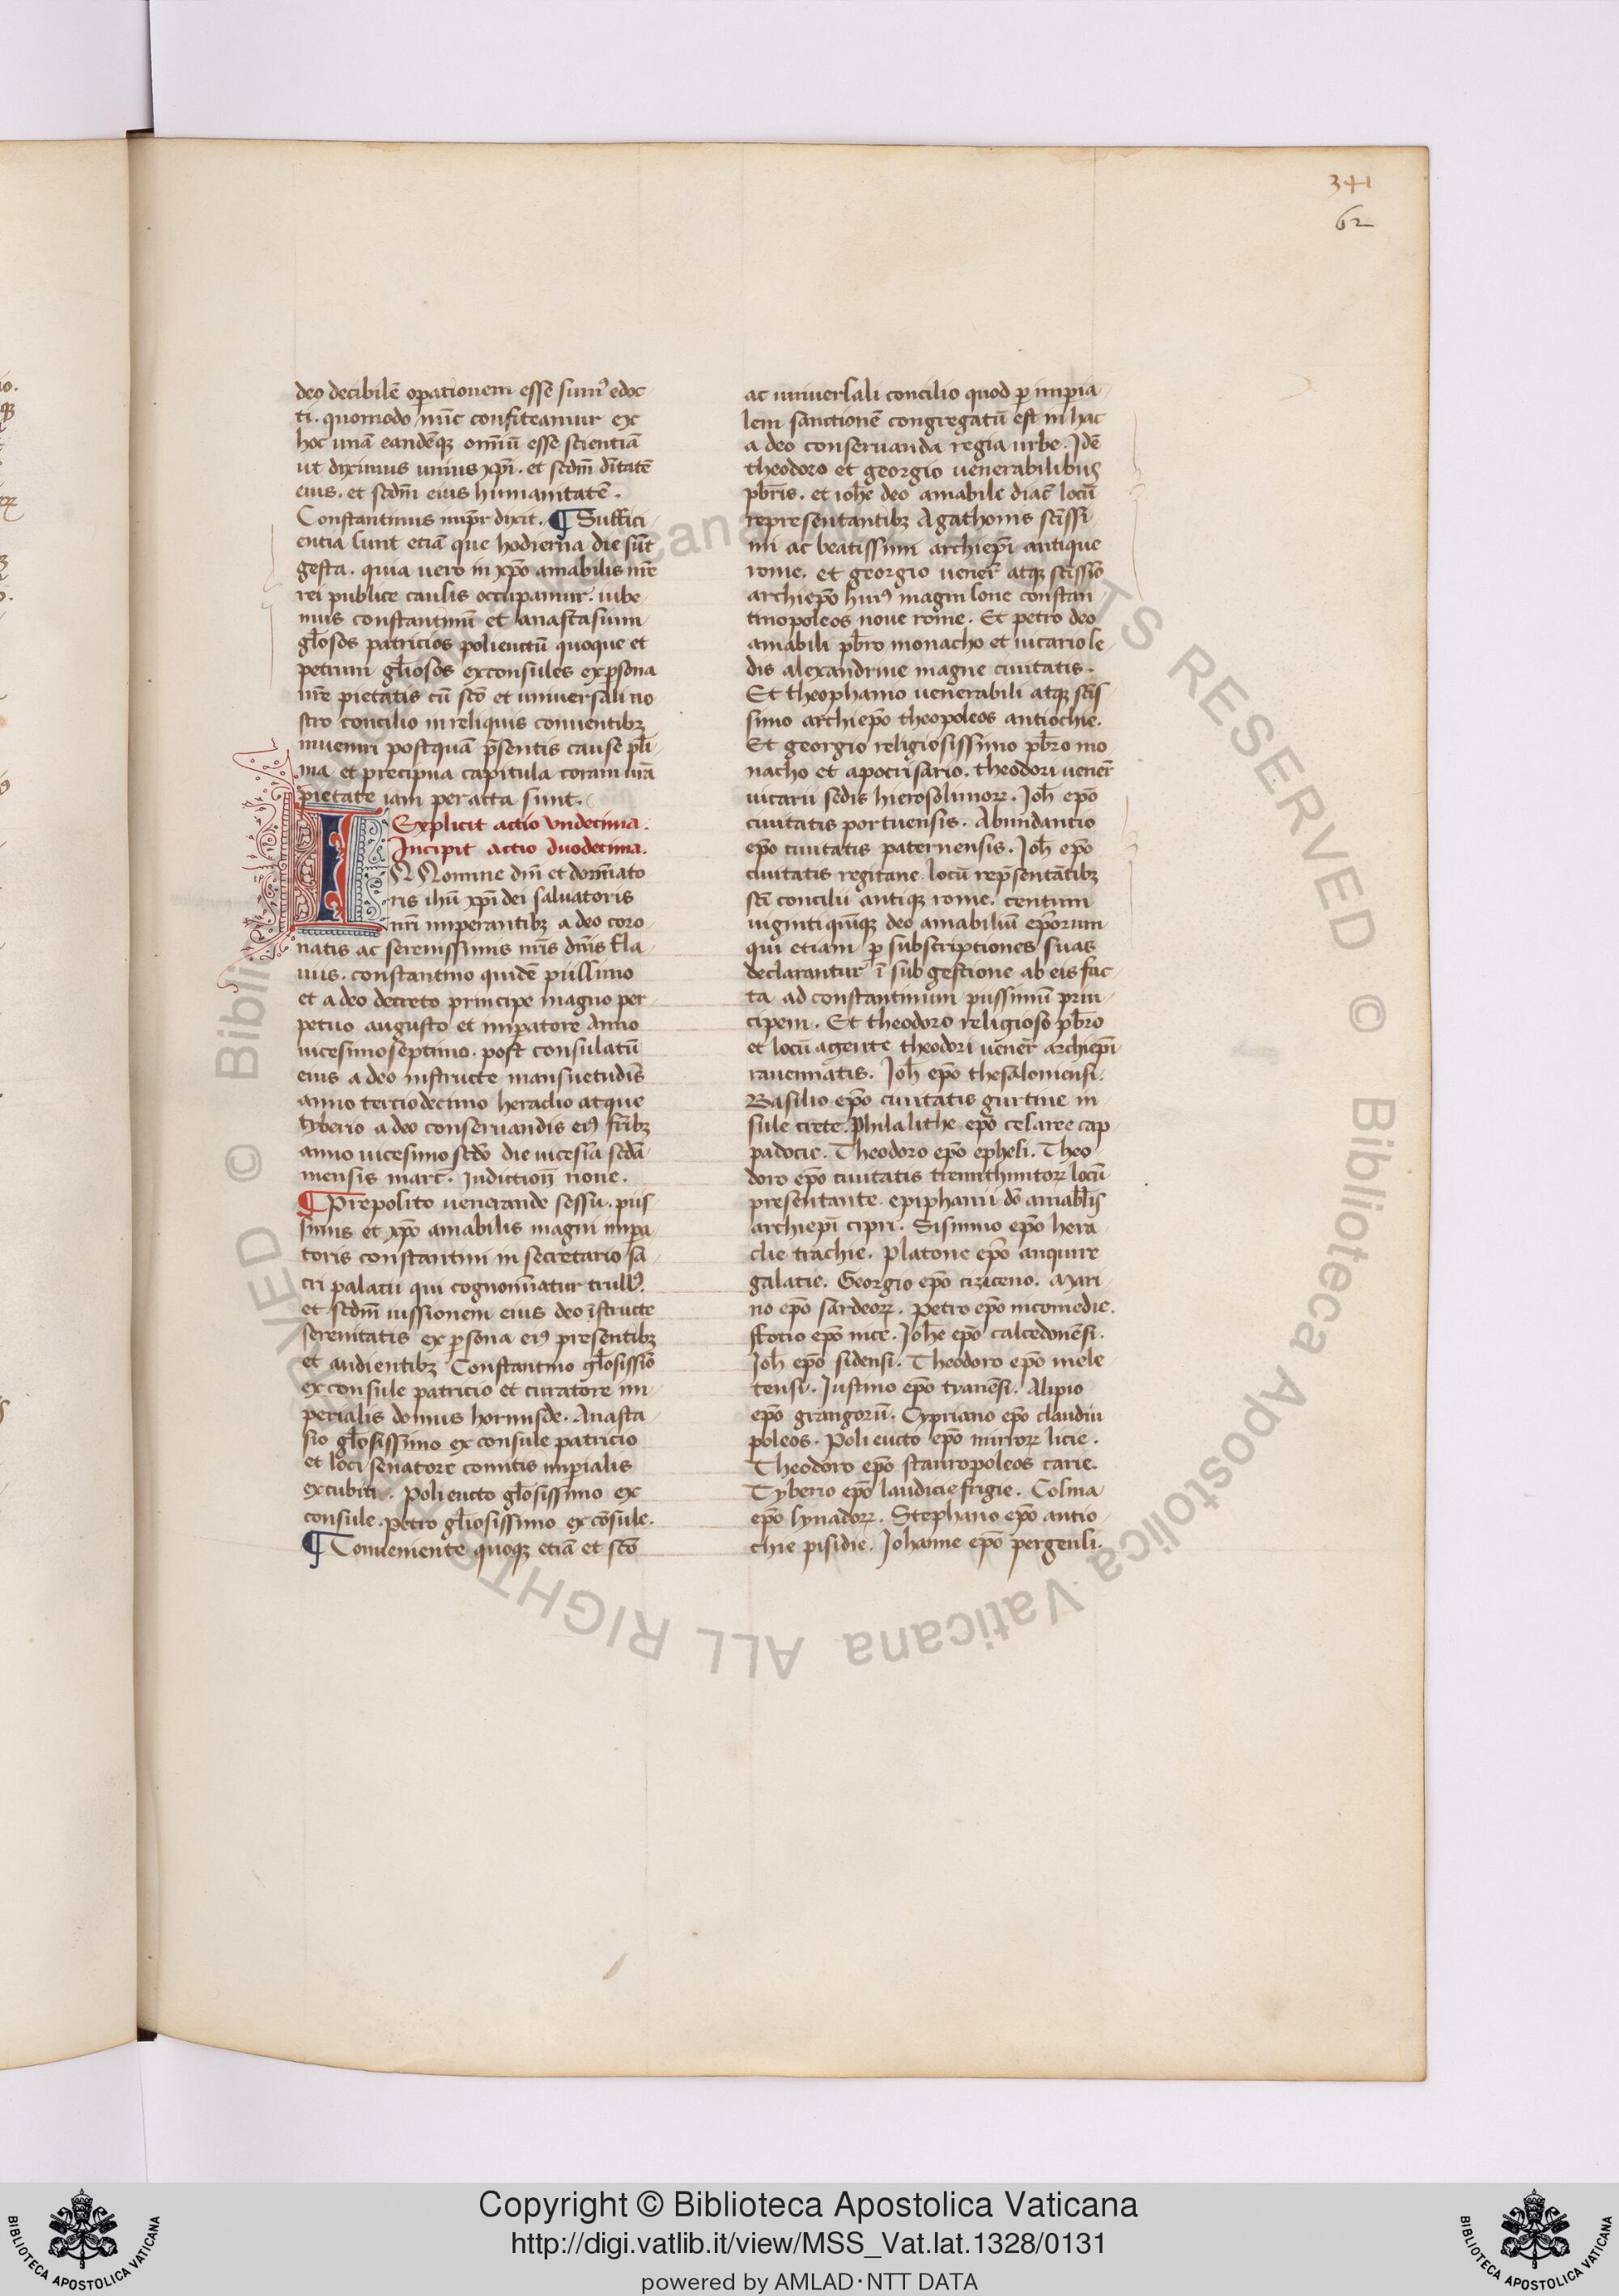 341
62
deo decibilē oꝑationem esse sumꝰ edoc
ti. quomodo nūc confiteamur ex
hoc unā eandēqꝫ om̄iū esse scientiā
ut diximus unius xp̄i. et scdm̄ dītatē
eius. et scdm̄ eius humanitatē.
Constantinus imp̄r dixit. ¶ Suffici
entia sunt etiā que hodierna die sūt
gesta. quia uero in xp̄o amabilis nr̄e
rei publice causis occupamur. iube
mus constantinū et anastasium
gl̄osos patricios polieuctū quoque et
petrum gl̄iosos exconsules ex ꝑsona
nr̄e pietatis cū sc̄o et uniuersali no
stro concilio in reliquis conuentibꝫ
inueniri postquā p̄sentis cause pl̄i
ma et precipua capitula coram nr̄ā
pietate iam peracta sunt.
Explicit actio vndecima.
Incipit actio duodecima.
IN Nomine dn̄i et domīato
ris ihū xp̄i dei saluatoris
nr̄i imperantibꝫ a deo coro
natis ac serenissimis nr̄is dn̄is fla
uiis. constantino quidē piissimo
et a deo decreto principe magno per
petuo augusto et imꝑatore anno
uicesimoseptimo. post consulatū
eius a deo instructe mansuetudīs
anno terciodecimo heraclio atque
tyberio a deo conseruandis eiꝰ fr̄ibꝫ
anno uicesimo scdo die uicesīa scdā
mensis marc̄. Indiction̄ none.
¶ Preposito uenerande sessu. piis
simus et xp̄o amabilis magni imꝑa
toris constantini in secretario sa
cri palacii qui cognomīatur trullꝰ.
et scdm̄ iussionem eius deo īstructe
serenitatis ex ꝑsona eiꝰ presentibꝫ
et audientibꝫ Constantino gl̄osissīo
ex consule patricio et curatore im
perialis domus hormisde. Anasta
sio gl̄osissimo ex consule patricio
et loci seruatore comitis imꝑialis
excubiti. Polieucto gl̄osissimo ex
consule. Petro gl̄iosissimo ex cōsule.
¶ Conueniente quoqꝫ etiā et sc̄o
ac uniuersali concilio quod ꝑ imꝑia
lem sanctionē congregatū est in hac
a deo conseruanda regia urbe. Idē
theodoro et georgio uenerabilibus
pb̄ris. et ioh̄e deo amabile diac̄ locū
representantibꝫ Agathonis sc̄issi
mi ac beatissimi archiep̄i antique
rome. et georgio uener̄ atqꝫ sc̄issīo
archiep̄o huiꝰ magni sone constan
tinopoleos noue rome. Et petro deo
amabili pb̄ro monacho et uicario se
dis alexandrine magne ciuitatis.
Et theophanio uenerabili atqꝫ sc̄is
simo archiep̄o theopoleos antiochie.
Et georgio religiosissimo pb̄ro mo
nacho et apocrisario. theodori uener̄
uicarii sedis hierosolimoꝝ. Ioh̄ ep̄o
ciuitatis portuensis. Abundancio
ep̄o ciuitatis paternensis. Ioh̄ ep̄o
ciuitatis regitane locū rep̄sentātibꝫ
sc̄i concilii antiqꝫ rome. centum
uigintiquīqꝫ deo amabiliū ep̄orum
qui etiam ꝑ subscriptiones suas
declarantur ī subgestione ab eis fac
ta ad constantinum piissimū prin
cipem. Et theodoro religioso pb̄ro
et locū agente theodori uener̄ archiep̄i
rauennatis. Ioh̄ ep̄o thesalonicensi.
Basilio ep̄o ciuitatis gurtine in
sule crete. Philalithe ep̄o cesaree cap
padocie. Theodoro ep̄o ephesi. Theo
doro ep̄o ciuitatis trimithuntoꝝ locū
presentante epiphanii dō amabl̄is
archiep̄i cipri. Sisinnio ep̄o hera
clie trachie. Platone ep̄o anquire
galatie. Georgio ep̄o ciziceno. Mari
no ep̄o sardeoꝝ. Petro ep̄o nicomedie.
ffocio ep̄o nice. Ioh̄e ep̄o calcedonēsi.
Ioh̄ ep̄o sidensi. Theodoro ep̄o mele
tensi. Iustino ep̄o tyanēsi. Alipio
ep̄o grangorū. Cypriano ep̄o claudiu
poleos. Polieucto ep̄o mirroꝝ licie.
Theodoro ep̄o stauropoleos carie.
Tyberio ep̄o laudicie frigie. Cosma
ep̄o synadoꝝ. Stephano ep̄o antio
chie pisidie. Iohanne ep̄o pergensi.
© Biblioteca Apostolica Vaticana ALL RIGHTS RESERVED © Biblioteca Apostolica Vaticana ALL RIGHTS RESERVED
Copyright © Biblioteca Apostolica Vaticana
http://digi.vatlib.it/view/MSS_Vat.lat.1328/0131
powered by AMLAD·NTT DATA
BIBLIOTECA APOSTOLICA VATICANA
BIBLIOTECA APOSTOLICA VATICANA